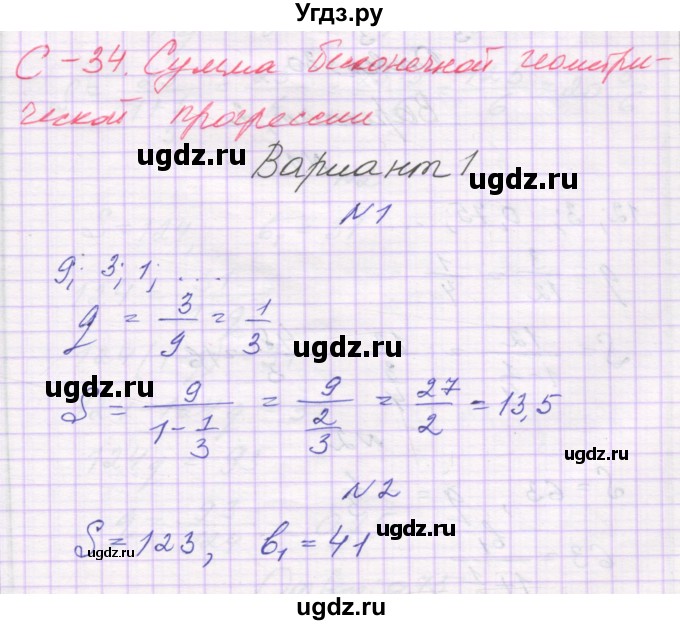 Угдз.ру
С-34. Сумма бесконечной геометри-
ческой прогрессии
ugdz.ru ugdz.ru
Вариант 1
N1
9; 3; 1; ...
q = 3/9 = 1/3
ugdz.ru
ugdz.ru
S = 9/(1-1/3) = 9/(2/3) = 27/2 = 13,5
ugdz.ru ugdz.ru
N2
ugdz.ru
S=123, b₁=41
ugdz.ru
ugdz.ru
ugdz.ru